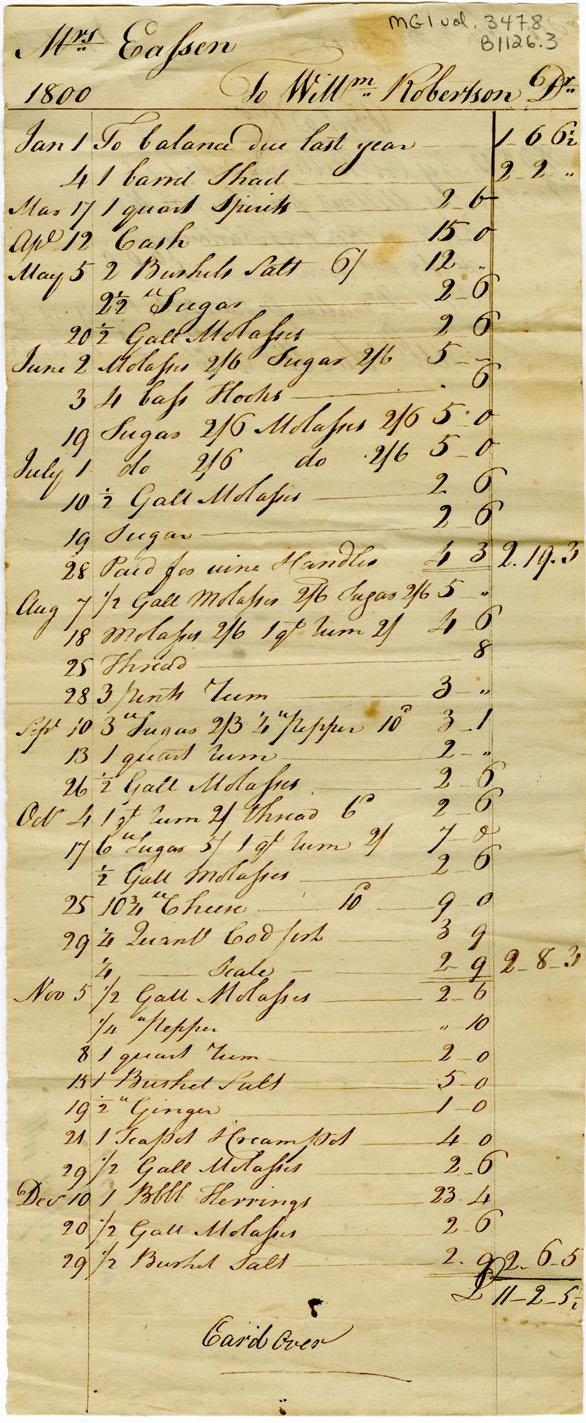 MG1 vol. 3478
B1126.3
Mrs Eassen
1800 To Willm Robertson Dr
Jan 1 To balance due last year 1 - 6 6½
4 1 barrel Shad 2 - 2 "
Mar 17 1 quart Spirits 2 6
Apl 12 Cash 15 0
May 5 2 Bushels Salt 6/ 12 "
2½ " Sugar 2 - 6
20 ½ Gall Molasses 2 6
June 2 Molasses 2/6 Sugar 2/6 5 - -
3 4 bass Hooks 6
19 Sugar 2/6 Molasses 2/6 5 - 0
July 1 do 2/6 do 2/6 5 - 0
10 ½ Gall Molasses 2 6
19 Sugar 2 6
28 Paid for Handles 4 3 2. 19. 3
Aug 7 ½ Gall Molasses 2/6 Sugar 2/6 5 "
18 Molasses 2/6 1 qt Rum 2/ 4 - 6
25 Thread 8
28 3 pints Rum 3 - "
Sept 10 3 " Sugar 2/3 ¼ " Pepper 10d 3 - 1
13 1 quart Rum 2 - "
26 ½ Gall Molasses 2 - 6
Oct 4 1 qt Rum 2/ thread 6d 2 - 6
17 6 " Sugar 5/ 1 qt Rum 2/ 7 - 0
½ Gall Molasses 2 - 6
25 10¾ " Cheese 10d 9 0
29 ¼ Quintl Cod fish 3 9
¼ Scale 2 - 9 2 - 8 - 3
Nov 5 ½ Gall Molasses 2 - 6
¼ " Pepper " 10
8 1 quart Rum 2 - 0
1 Bushel Salt 5 - 0
19 ½ " Ginger 1 - 0
21 1 Teapot & Creampot 4 0
29 ½ Gall Molasses 2 - 6
Decr 10 1 Bbll Herrings 23 - 4
20 ½ Gall Molasses 2 - 6
29 ½ Bushel Salt 2 - 9 2 - 6 - 5
£ 11 - 2 - 5½
Card Over